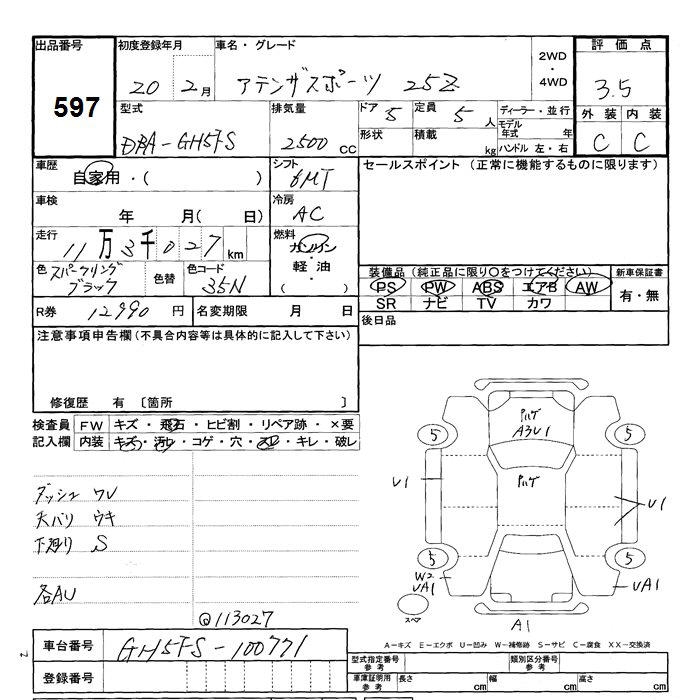 出品番号 初度登録年月 車名・グレード 2WD・4WD 評価点
597 20年2月 アテンザスポーツ 25Z 3.5
外装 内装
C C
型式 排気量 ドア 5 定員 5人 ディーラー・並行
DBA-GH5FS 2500cc 形状 積載 kg モデル年式 年
ハンドル 左・右
車歴 自家用・( ) シフト 6MT セールスポイント (正常に機能するものに限ります)
車検 年 月( 日) 冷房 AC
走行 11万3千027km 燃料 ガソリン・軽油・( )
色 スパークリングブラック 色替 色コード 35N
装備品 (純正品に限り○をつけてください) 新車保証書
PS PW ABS エアB AW 有・無
SR ナビ TV カワ
R券 12990円 名変期限 月 日 後日品
注意事項申告欄(不具合内容等は具体的に記入して下さい)
修復歴 有 〔箇所 〕
検査員 FW キズ・飛石・ヒビ割・リペア跡・×要
記入欄 内装 キズ・汚レ・コゲ・穴・スレ・キレ・破レ
ダッシュ ワレ
天バリ ウキ
下廻り S
各AU
@113027
ハゲ
A3U1
ハゲ
5
5
U1
U1
5
5
W2
UA1
UA1
スペア
A1
A−キズ E−エクボ U−凹み W−補修跡 S−サビ C−腐食 XX−交換済
車台番号 GH5FS-100771
登録番号
型式指定番号 参考 類別区分番号 参考
車庫証明用 参考 長さ cm 幅 cm 高さ cm